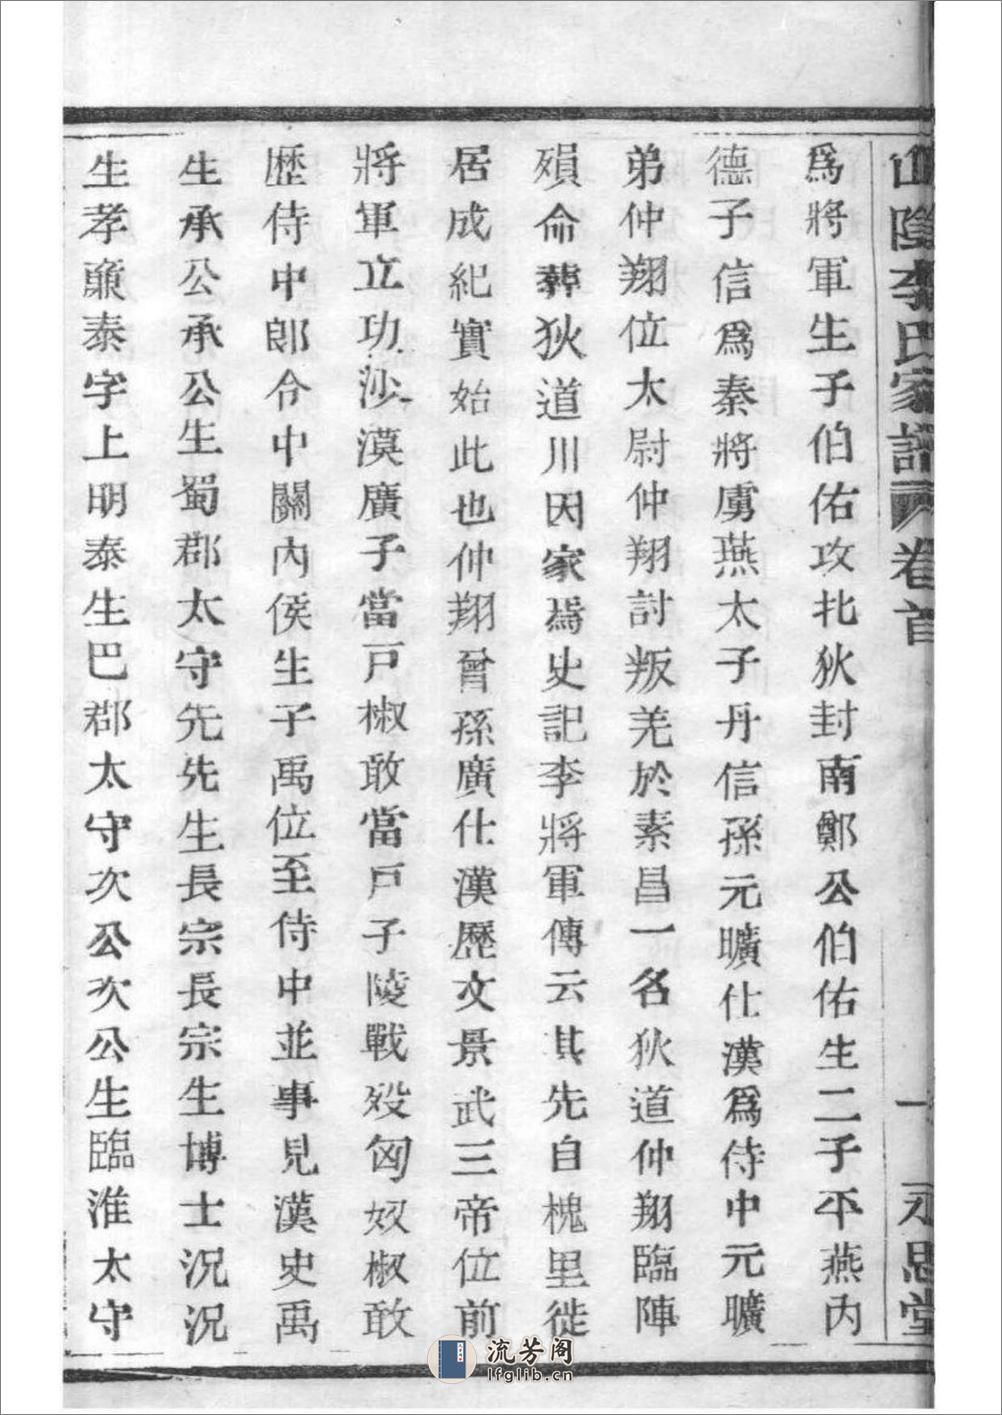 山陰李氏家譜 卷首 一 永思堂
爲將軍生子伯佑攻北狄封南鄭公伯佑生二子平燕内
德子信爲秦將虜燕太子丹信孫元曠仕漢爲侍中元曠
弟仲翔位太尉仲翔討叛羌於素昌一名狄道仲翔臨陣
殞命葬狄道川因家焉史記李將軍傳云其先自槐里徙
居成紀實始此也仲翔曾孫廣仕漢歷文景武三帝位前
將軍立功沙漠廣子當戸椒敢當戸子陵戰歿匈奴椒敢
歷侍中郎令中關内侯生子禹位至侍中並事見漢史禹
生承公承公生蜀郡太守先先生長宗長宗生博士況況
生孝廉泰字上明泰生巴郡太守次公次公生臨淮太守
流芳阁
lfglib.cn